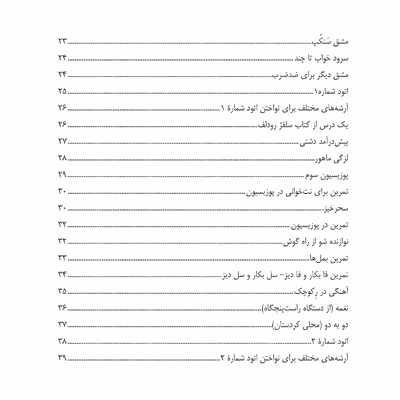 مشق سَنکُپ ۲۳
سرود خواب تا چند ۲۴
مشق دیگر برای ضدضرب ۲۴
اتود شماره۱ ۲۵
آرشه‌های مختلف برای نواختن اتود شمارهٔ ۱ ۲۶
یک درس از کتاب سلفژ رودلف ۲۶
پیش‌درآمد دشتی ۲۷
لزگی ماهور ۲۸
پوزیسیون سوم ۲۹
تمرین برای نت‌خوانی در پوزیسیون ۳۰
سحرخیز ۳۰
تمرین در پوزیسیون ۳۲
نوازنده شو از راه گوش ۳۲
تمرین بمل‌ها ۳۳
تمرین فا بکار و فا دیز- سل بکار و سل دیز ۳۴
آهنگی در رِکوچک ۳۵
نغمه (از دستگاه راست‌پنجگاه) ۳۶
دو به دو (محلی کردستان) ۳۷
اتود شمارهٔ ۲ ۳۸
آرشه‌های مختلف برای نواختن اتود شمارهٔ ۲ ۳۹